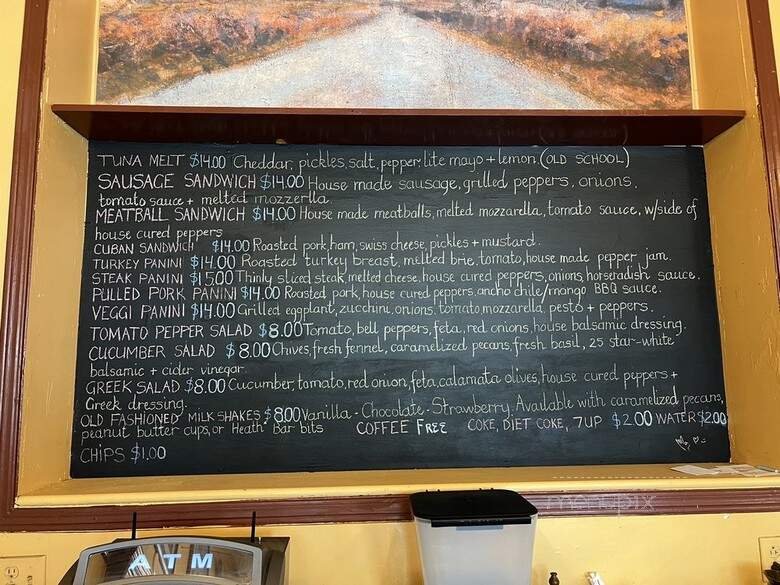 TUNA MELT $14.00 Cheddar, pickles, salt, pepper, lite mayo + lemon. (OLD SCHOOL)
SAUSAGE SANDWICH $14.00 House made sausage, grilled peppers, onions,
tomato sauce + melted mozzerlla.
MEATBALL SANDWICH $14.00 House made meatballs, melted mozzarella, tomato sauce, w/side of
house cured peppers
CUBAN SANDWICH $14.00 Roasted pork, ham, swiss cheese, pickles + mustard.
TURKEY PANINI $14.00 Roasted turkey breast, melted brie, tomato, house made pepper jam.
STEAK PANINI $15.00 Thinly sliced steak, melted cheese, house cured peppers, onions, horseradish sauce.
PULLED PORK PANINI $14.00 Roasted pork, house cured peppers, ancho chile/mango BBQ sauce.
VEGGI PANINI $14.00 Grilled eggplant, zucchini, onions, tomato, mozzarella, pesto + peppers.
TOMATO PEPPER SALAD $8.00 Tomato, bell peppers, feta, red onions, house balsamic dressing.
CUCUMBER SALAD $8.00 Chives, fresh fennel, caramelized pecans, fresh basil, 25 star-white
balsamic + cider vinegar
GREEK SALAD $8.00 Cucumber, tomato, red onion, feta, calamata olives, house cured peppers +
Greek dressing.
OLD FASHIONED MILK SHAKES $8.00 Vanilla - Chocolate - Strawberry. Available with caramelized pecans,
peanut butter cups, or Heath Bar bits COFFEE FREE COKE, DIET COKE, 7UP $2.00 WATER $2.00
CHIPS $1.00
menupix
ATM